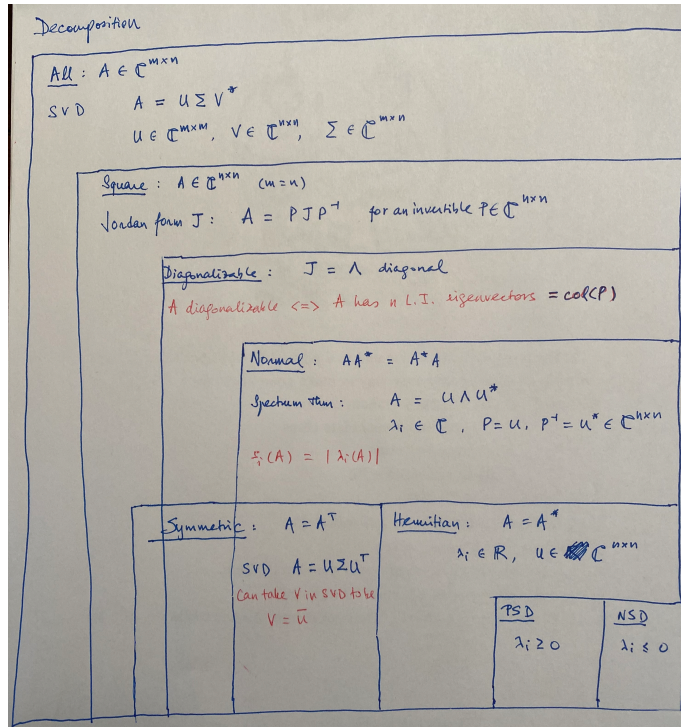 Decomposition
All : A ∈ ℂ^{m×n}
SVD A = U Σ V*
U ∈ ℂ^{m×m}, V ∈ ℂ^{n×n}, Σ ∈ ℂ^{m×n}
Square : A ∈ ℂ^{n×n} (m=n)
Jordan form J : A = P J P^{-1} for an invertible P ∈ ℂ^{n×n}
Diagonalizable : J = Λ diagonal
A diagonalizable <=> A has n L.I. eigenvectors = col(P)
Normal : AA* = A*A
Spectrum thm : A = U Λ U*
λi ∈ ℂ, P = U, P^{-1} = U* ∈ ℂ^{n×n}
σi(A) = |λi(A)|
Symmetric : A = A^T
SVD A = U Σ U^T
Can take V in SVD to be
V = Ū
Hermitian : A = A*
λi ∈ ℝ, U ∈ ℂ^{n×n}
PSD
λi ≥ 0
NSD
λi ≤ 0